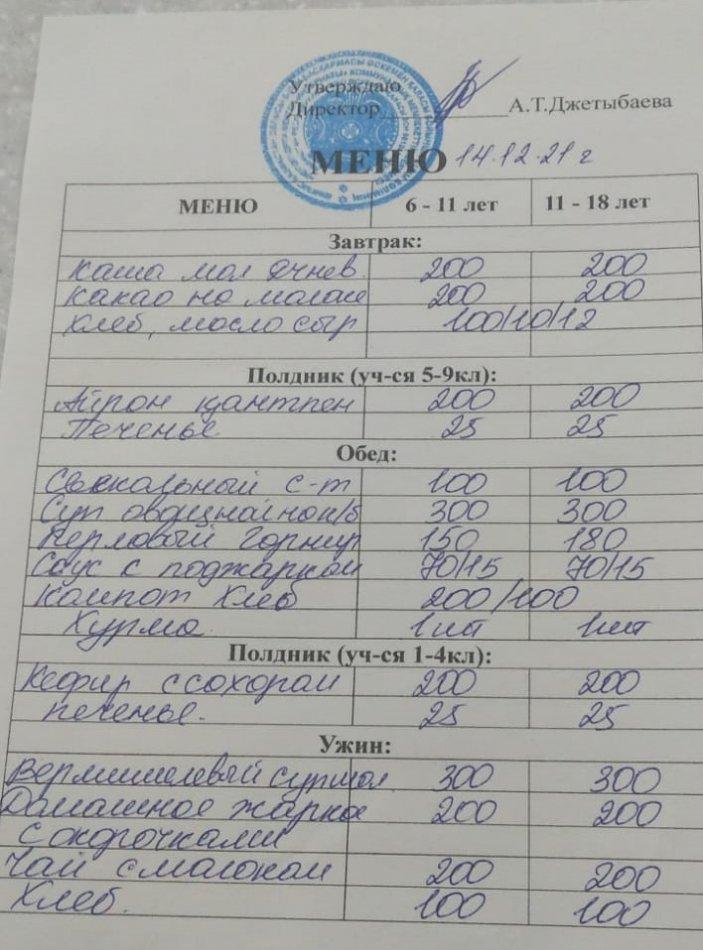 Утверждаю
Директор А.Т.Джетыбаева
МЕНЮ 14.12.21 г
МЕНЮ 6 - 11 лет 11 - 18 лет
Завтрак:
каша мол ячнев 200 200
какао на молоке 200 200
хлеб, масло сыр 100/10/12
Полдник (уч-ся 5-9кл):
Айран қантпен 200 200
Печенье 25 25
Обед:
Свекольный с-т 100 100
Суп овощной на к/б 300 300
Перловый гарнир 150 180
Соус с поджаркой 70/15 70/15
Компот Хлеб 200/100
Хурма 1шт 1шт
Полдник (уч-ся 1-4кл):
Кефир с сахаром 200 200
печенье. 25 25
Ужин:
Вермишелевый суп мол. 300 300
Домашное жаркое 200 200
с окорочками
Чай с молоком 200 200
Хлеб. 100 100